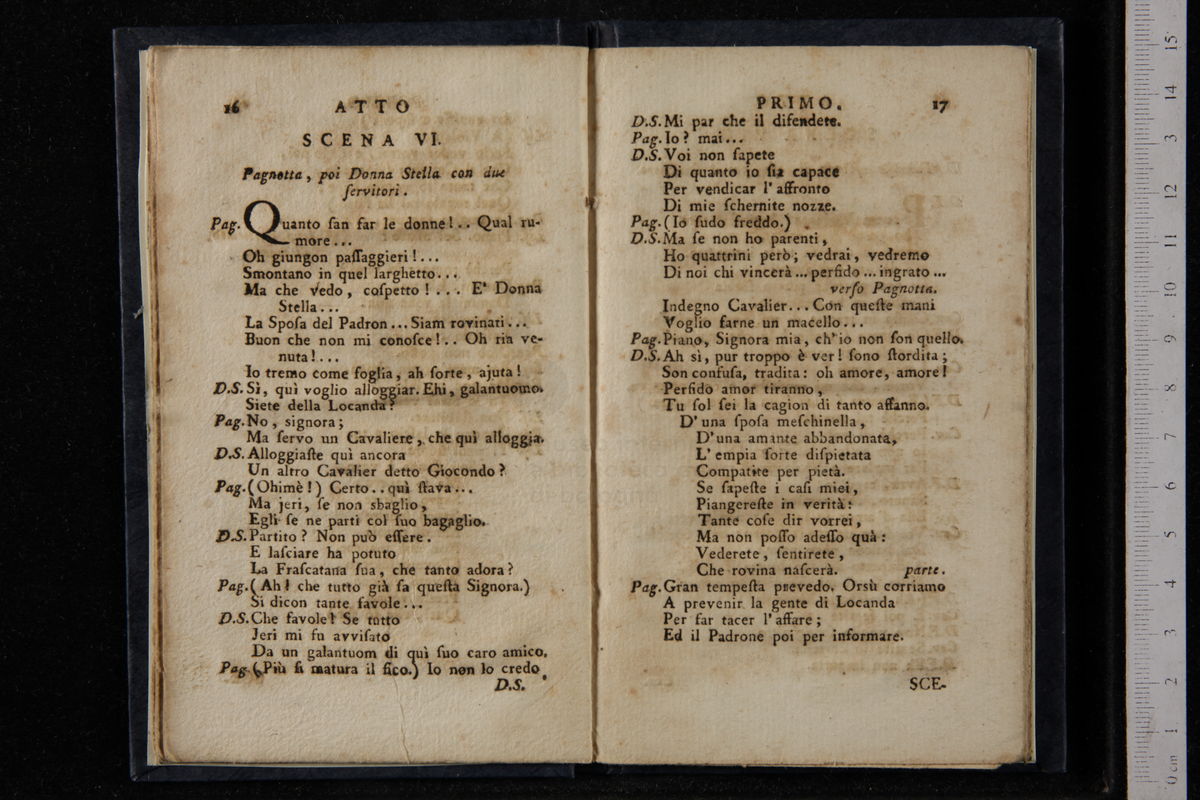 16 ATTO
SCENA VI.
Pagnotta, poi Donna Stella con due
ſervitori.
Pag. Quanto ſan far le donne!.. Qual ru-
more...
Oh giungon paſſaggieri!...
Smontano in quel larghetto...
Ma che vedo, coſpetto!... E' Donna
Stella...
La Spoſa del Padron... Siam rovinati...
Buon che non mi conoſce!.. Oh ria ve-
nuta!...
Io tremo come foglia, ah ſorte, ajuta!
D.S. Sì, quì voglio alloggiar. Ehi, galantuomo.
Siete della Locanda?
Pag. No, signora;
Ma ſervo un Cavaliere, che quì alloggia.
D.S. Alloggiaſte quì ancora
Un altro Cavalier detto Giocondo?
Pag. (Ohimè!) Certo.. quì ſtava...
Ma jeri, ſe non sbaglio,
Egli ſe ne partì col ſuo bagaglio.
D.S. Partito? Non può eſſere.
E laſciare ha potuto
La Fraſcatana ſua, che tanto adora?
Pag. (Ah! che tutto già ſa queſta Signora.)
Si dicon tante favole...
D.S. Che favole! Se tutto
Jeri mi fu avviſato
Da un galantuom di quì ſuo caro amico.
Pag. (Più ſi matura il fico.) Io non lo credo.
D.S.
PRIMO. 17
D.S. Mi par che il difendete.
Pag. Io? mai...
D.S. Voi non ſapete
Di quanto io ſia capace
Per vendicar l'affronto
Di mie ſchernite nozze.
Pag. (Io ſudo freddo.)
D.S. Ma ſe non ho parenti,
Ho quattrini però; vedrai, vedremo
Di noi chi vincerà... perfido... ingrato...
verſo Pagnotta.
Indegno Cavalier... Con queſte mani
Voglio farne un macello...
Pag. Piano, Signora mia, ch'io non ſon quello.
D.S. Ah sì, pur troppo è ver! ſono ſtordita;
Son confuſa, tradita: oh amore, amore!
Perfido amor tiranno,
Tu ſol ſei la cagion di tanto affanno.
D'una ſpoſa meſchinella,
D'una amante abbandonata,
L'empia ſorte diſpietata
Compatite per pietà.
Se ſapeſte i caſi miei,
Piangereſte in verità:
Tante coſe dir vorrei,
Ma non poſſo adeſſo quà:
Vederete, ſentirete,
Che rovina naſcerà. parte.
Pag. Gran tempeſta prevedo. Orsù corriamo
A prevenir la gente di Locanda
Per far tacer l'affare;
Ed il Padrone poi per informare.
SCE-
0 cm 1 2 3 4 5 6 7 8 9 10 11 12 13 14 15